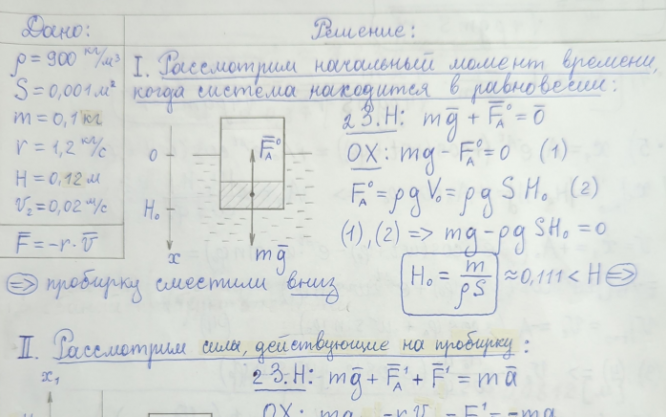 Дано:
ρ = 900 кг/м³
S = 0,001 м²
m = 0,1 кг
r = 1,2 кг/с
H = 0,12 м
v₂ = 0,02 м/с
F̅ = -r·v̅
Решение:
I. Рассмотрим начальный момент времени,
когда система находится в равновесии:
0
H₀
x
F̅_A⁰
mg̅
2 З.Н: mg̅ + F̅_A⁰ = 0̅
OX: mg - F_A⁰ = 0 (1)
F_A⁰ = ρgV₀ = ρg S H₀ (2)
(1), (2) => mg - ρg SH₀ = 0
H₀ = m/ρS ≈ 0,111 < H ⇒
⇒ пробирку сместили вниз
II. Рассмотрим силы, действующие на пробирку:
x₁
2 З.Н: mg̅ + F̅_A¹ + F̅¹ = ma̅